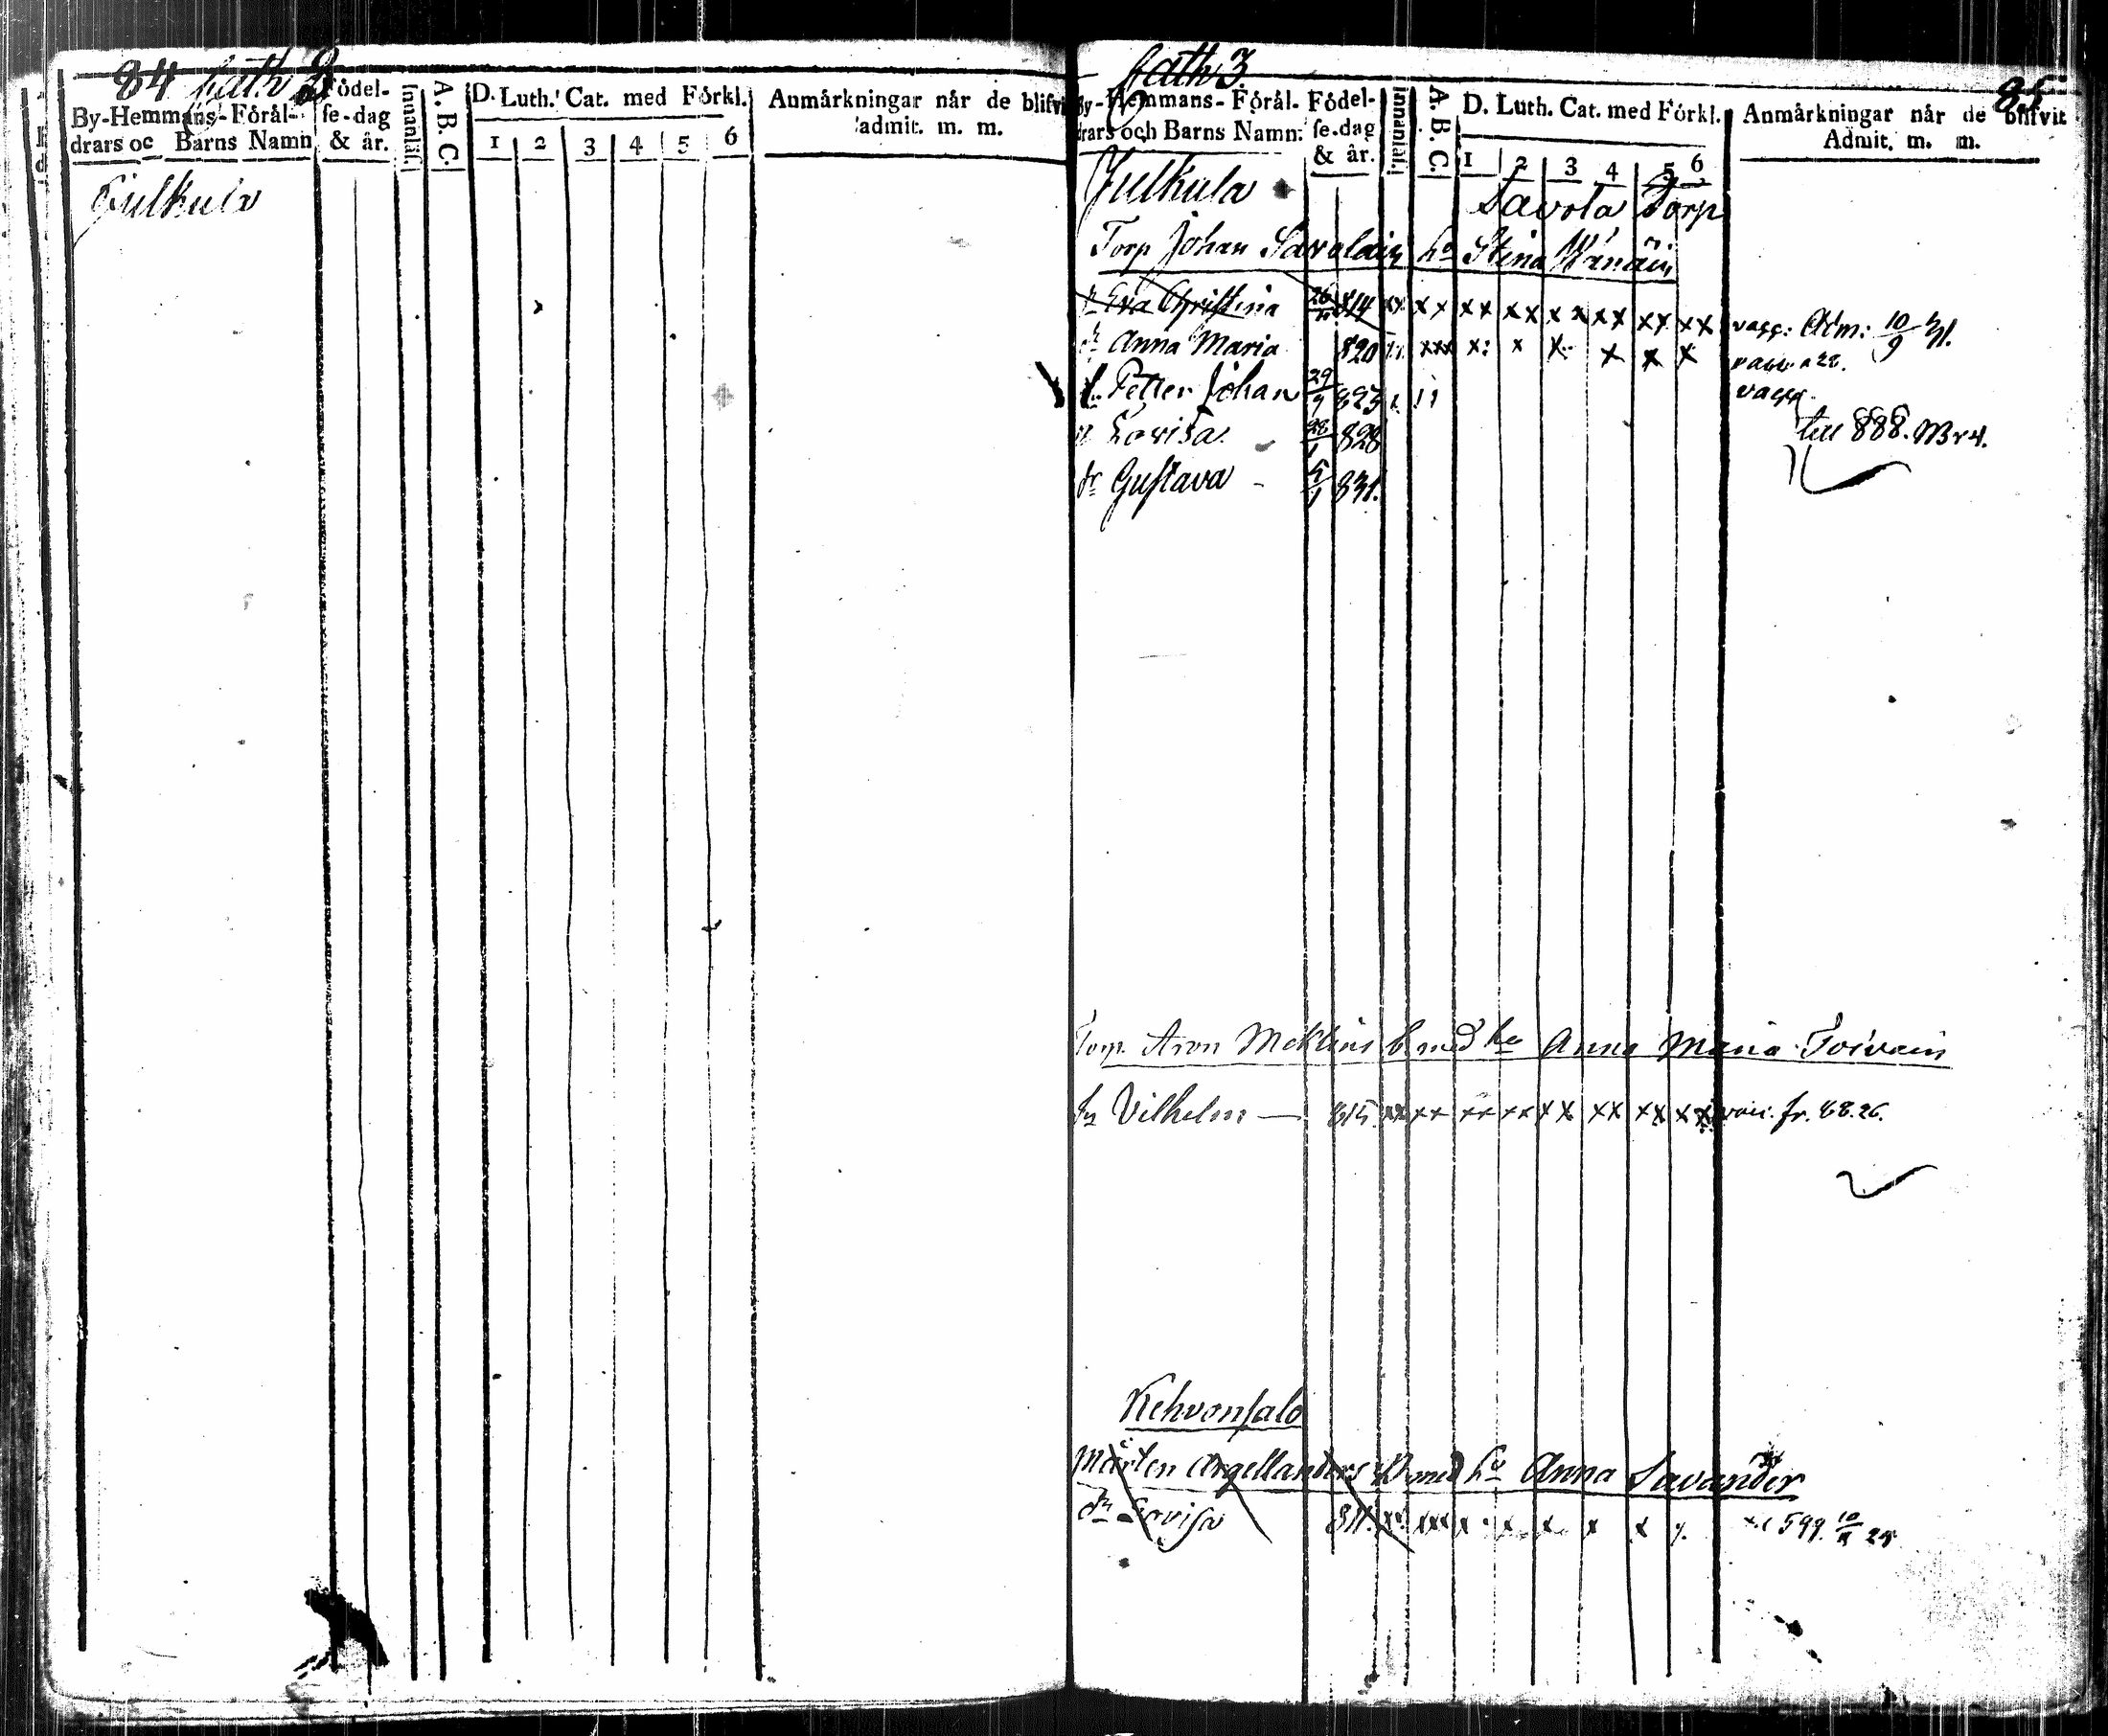 84 Cath 3
By-Hemmans-Förål-
drars oc Barns Namn
Födel-
se-dag
& år.
Innanläs.
A. B. C.
D. Luth. Cat. med Förkl.
1 2 3 4 5 6
Anmärkningar når de blifvi
admit. m. m.
Julkula
Cath 3
85
By-Hemmans-Förål-
drars och Barns Namn.
Födel-
se-dag
& år.
Innanläs.
A. B. C.
D. Luth. Cat. med Förkl.
1 2 3 4 5 6
Anmärkningar når de blifvit
Admit. m. m.
Julkula
Savola Torp
Torp Johan Savolain hu Stina Wänäin
dr Eva Christina 26/11 814 xx xx xx xx xx xx xx xx vacc: Adm: 10/9 31.
dr Anna Maria 820 xxx x: x x x x x
Petter Johan 29/9 823 vacc.
dr Lovisa 28/1 828 till 888.
dr Gustava - 5/1 831.
Torp. Aron Meklins b med hu Anna Maria Toivain
Sn Vilhelm — 815. xx xx xx xx xx xx xx xx fr. 68.26.
Kehvonsalo
Mårten Argellanders B med hu Anna Savander
dr Lovisa 811. xx xxx x x x x x x 599.